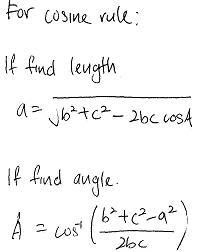 For cosine rule:
If find length
a = √b²+c² - 2bc cosA
If find angle.
Â = cos⁻¹ (b²+c²-a² / 2bc)